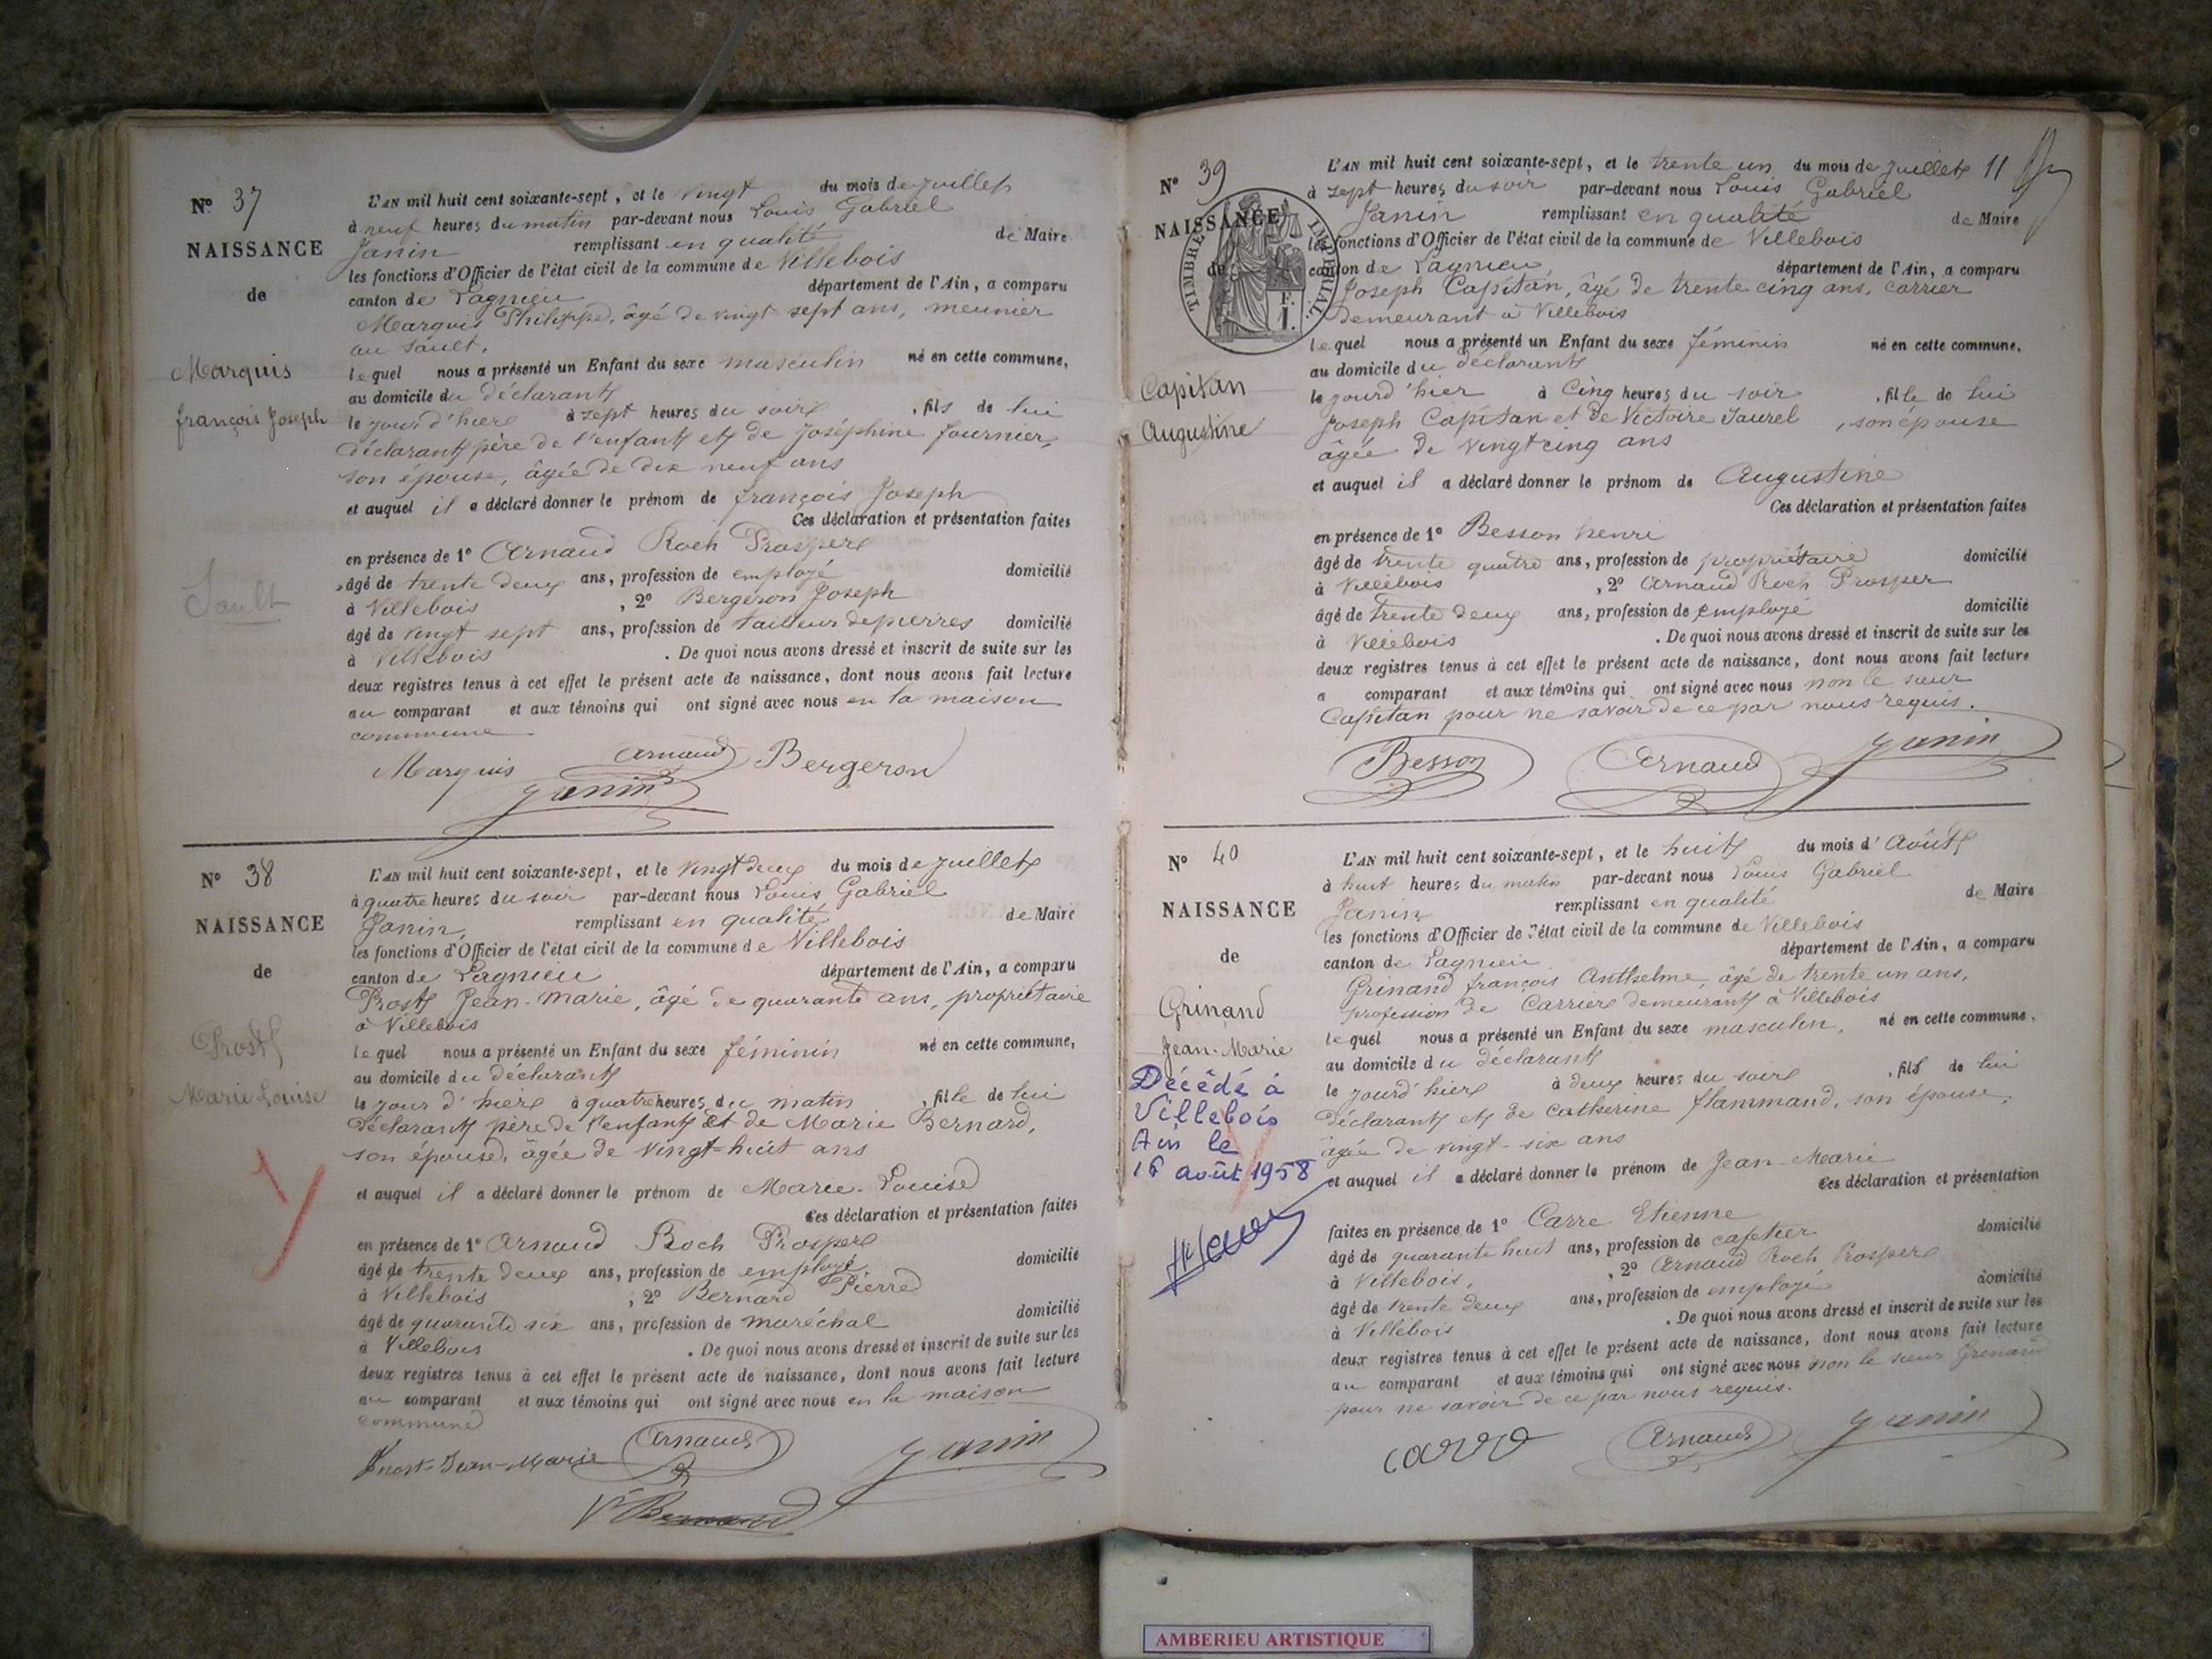 N° 37
NAISSANCE
de
Marquis
françois Joseph
Sault
L'AN mil huit cent soixante-sept, et le vingt du mois de juillet
à neuf heures du matin par-devant nous Louis Gabriel
Janin remplissant en qualité de Maire
les fonctions d'Officier de l'état civil de la commune de Villebois
canton de Lagnieu département de l'Ain, a comparu
Marquis Philippe, âgé de vingt-sept ans, meunier
au Sault,
lequel nous a présenté un Enfant du sexe masculin né en cette commune,
au domicile du déclarant
le jour d'hier à sept heures du soir, fils de lui
déclarant père de l'enfant et de Joséphine fournier,
son épouse, âgée de dix neuf ans
et auquel il a déclaré donner le prénom de françois Joseph
Ces déclaration et présentation faites
en présence de 1° Arnaud Roch Prosper
âgé de trente deux ans, profession de employé domicilié
à Villebois, 2° Bergeron Joseph
âgé de vingt sept ans, profession de tailleur de pierres domicilié
à Villebois. De quoi nous avons dressé et inscrit de suite sur les
deux registres tenus à cet effet le présent acte de naissance, dont nous avons fait lecture
au comparant et aux témoins qui ont signé avec nous en la maison
commune
Marquis Arnaud Bergeron
Janin
N° 38
NAISSANCE
de
Prost
Marie Louise
L'AN mil huit cent soixante-sept, et le vingt deux du mois de juillet
à quatre heures du soir par-devant nous Louis Gabriel
Janin, remplissant en qualité de Maire
les fonctions d'Officier de l'état civil de la commune de Villebois
canton de Lagnieu département de l'Ain, a comparu
Prost Jean-Marie, âgé de quarante ans, propriétaire
à Villebois
lequel nous a présenté un Enfant du sexe féminin né en cette commune,
au domicile du déclarant
le jour d'hier à quatre heures du matin, fille de lui
déclarant père de l'enfant et de Marie Bernard,
son épouse, âgée de vingt-huit ans
et auquel il a déclaré donner le prénom de Marie-Louise
Ces déclaration et présentation faites
en présence de 1° Arnaud Roch Prosper
âgé de trente deux ans, profession de employé domicilié
à Villebois, 2° Bernard Pierre
âgé de quarante six ans, profession de maréchal domicilié
à Villebois. De quoi nous avons dressé et inscrit de suite sur les
deux registres tenus à cet effet le présent acte de naissance, dont nous avons fait lecture
au comparant et aux témoins qui ont signé avec nous en la maison
commune
Prost-Jean-Marie Arnaud Janin
Bernard
N° 39
NAISSANCE
de
TIMBRE IMPERIAL
F.
1.
Capitan
Augustine
L'AN mil huit cent soixante-sept, et le trente un du mois de juillet 11
à sept heures du soir par-devant nous Louis Gabriel
Janin remplissant en qualité de Maire
les fonctions d'Officier de l'état civil de la commune de Villebois
canton de Lagnieu département de l'Ain, a comparu
Joseph Capitan, âgé de trente cinq ans, carrier
demeurant à Villebois
lequel nous a présenté un Enfant du sexe féminin né en cette commune,
au domicile du déclarant
le jourd'hier à Cinq heures du soir, fille de lui
Joseph Capitan et de Victoire Saurel, son épouse
âgée de vingt cinq ans
et auquel il a déclaré donner le prénom de Augustine
Ces déclaration et présentation faites
en présence de 1° Besson henri
âgé de trente quatre ans, profession de propriétaire domicilié
à Villebois, 2° Arnaud Roch Prosper
âgé de trente deux ans, profession de employé domicilié
à Villebois. De quoi nous avons dressé et inscrit de suite sur les
deux registres tenus à cet effet le présent acte de naissance, dont nous avons fait lecture
a comparant et aux témoins qui ont signé avec nous non le sieur
Capitan pour ne savoir de ce par nous requis.
Besson Arnaud Janin
N° 40
NAISSANCE
de
Grinand
Jean-Marie
Décédé à
Villebois
Ain le
16 août 1958
L'AN mil huit cent soixante-sept, et le huit du mois d'Août
à huit heures du matin par-devant nous Louis Gabriel
Janin remplissant en qualité de Maire
les fonctions d'Officier de l'état civil de la commune de Villebois
canton de Lagnieu département de l'Ain, a comparu
Grinand françois Anthelme, âgé de trente un ans,
profession de Carrier demeurant à Villebois
lequel nous a présenté un Enfant du sexe masculin, né en cette commune,
au domicile du déclarant
le jourd'hier à deux heures du soir, fils de lui
déclarant et de Catherine flammand, son épouse,
âgée de vingt-six ans
et auquel il a déclaré donner le prénom de Jean-Marie
Ces déclaration et présentation
faites en présence de 1° Carre Etienne
âgé de quarante huit ans, profession de cafetier domicilié
à Villebois, 2° Arnaud Roch Prosper
âgé de trente deux ans, profession de employé domicilié
à Villebois. De quoi nous avons dressé et inscrit de suite sur les
deux registres tenus à cet effet le présent acte de naissance, dont nous avons fait lecture
au comparant et aux témoins qui ont signé avec nous non le sieur Grinand
pour ne savoir de ce par nous requis.
carre Arnaud Janin
AMBERIEU ARTISTIQUE